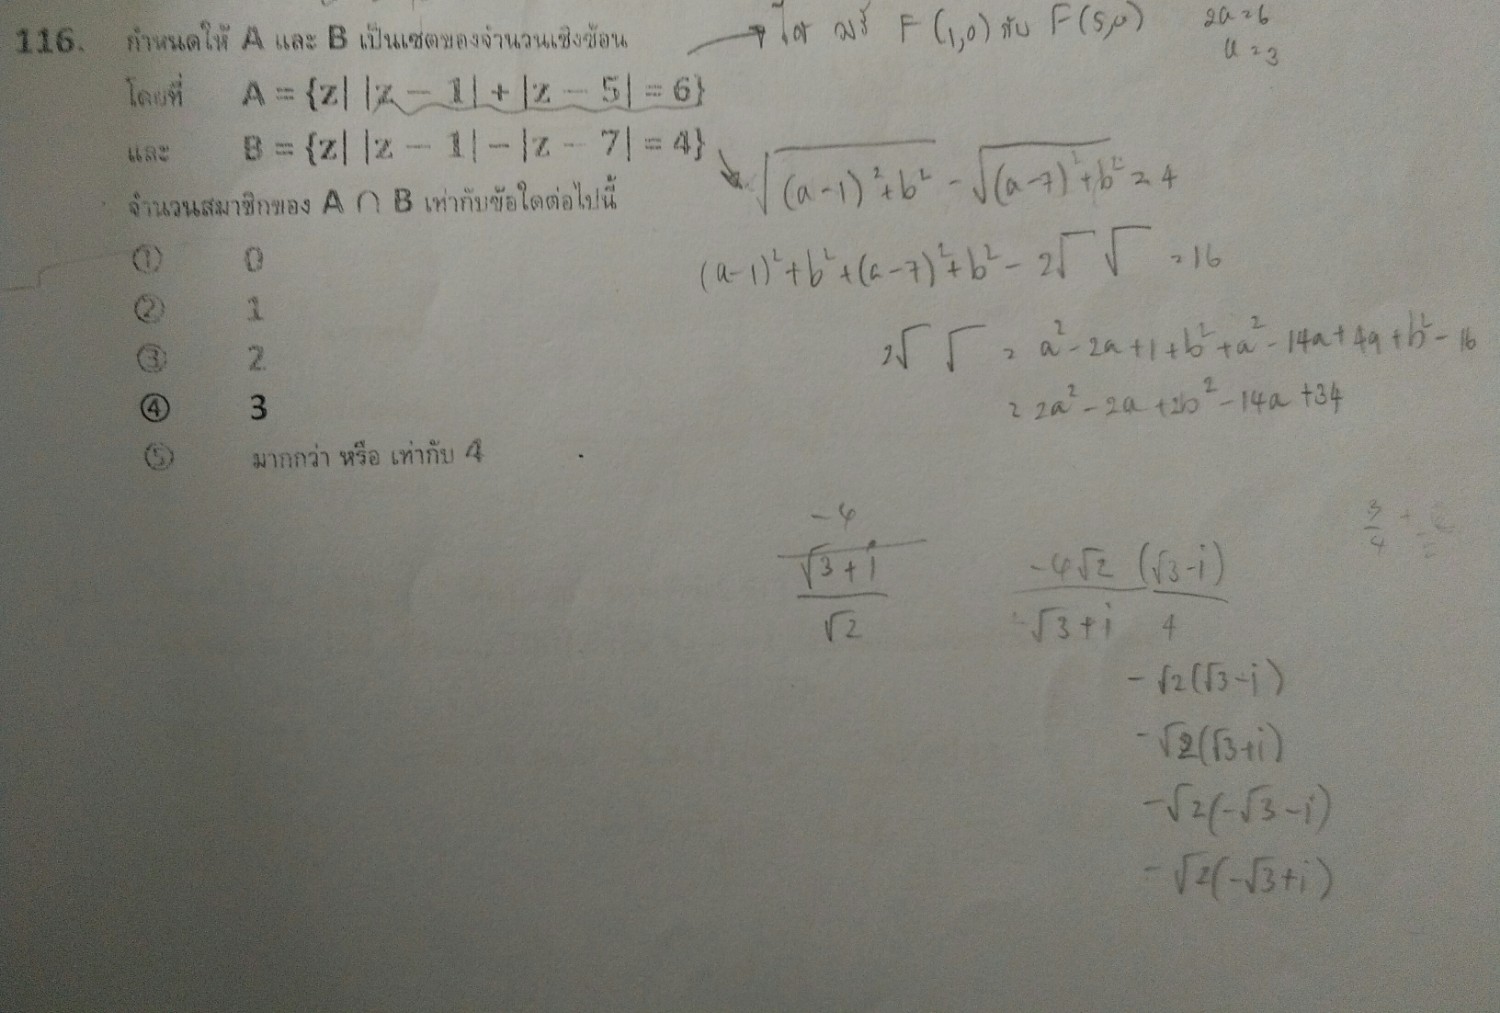 116. กำหนดให้ A และ B เป็นเซตของจำนวนเชิงซ้อน
โดยที่ A = {z| |z − 1| + |z − 5| = 6}
และ B = {z| |z − 1| − |z − 7| = 4}
จำนวนสมาชิกของ A ∩ B เท่ากับข้อใดต่อไปนี้
① 0
② 1
③ 2
④ 3
⑤ มากกว่า หรือ เท่ากับ 4
→ F(1,0) กับ F(5,0)
2a=6
a=3
√(a-1)²+b² - √(a-7)²+b² = 4
(a-1)²+b²+(a-7)²+b² - 2√ √ = 16
2√ √ = a²-2a+1+b²+a²-14a+49+b²-16
= 2a²-2a+2b²-14a+34
-4
√3+i
√2
-4√2 (√3-i)
√3+i 4
-√2(√3-i)
-√2(√3+i)
-√2(-√3-i)
-√2(-√3+i)
3
4